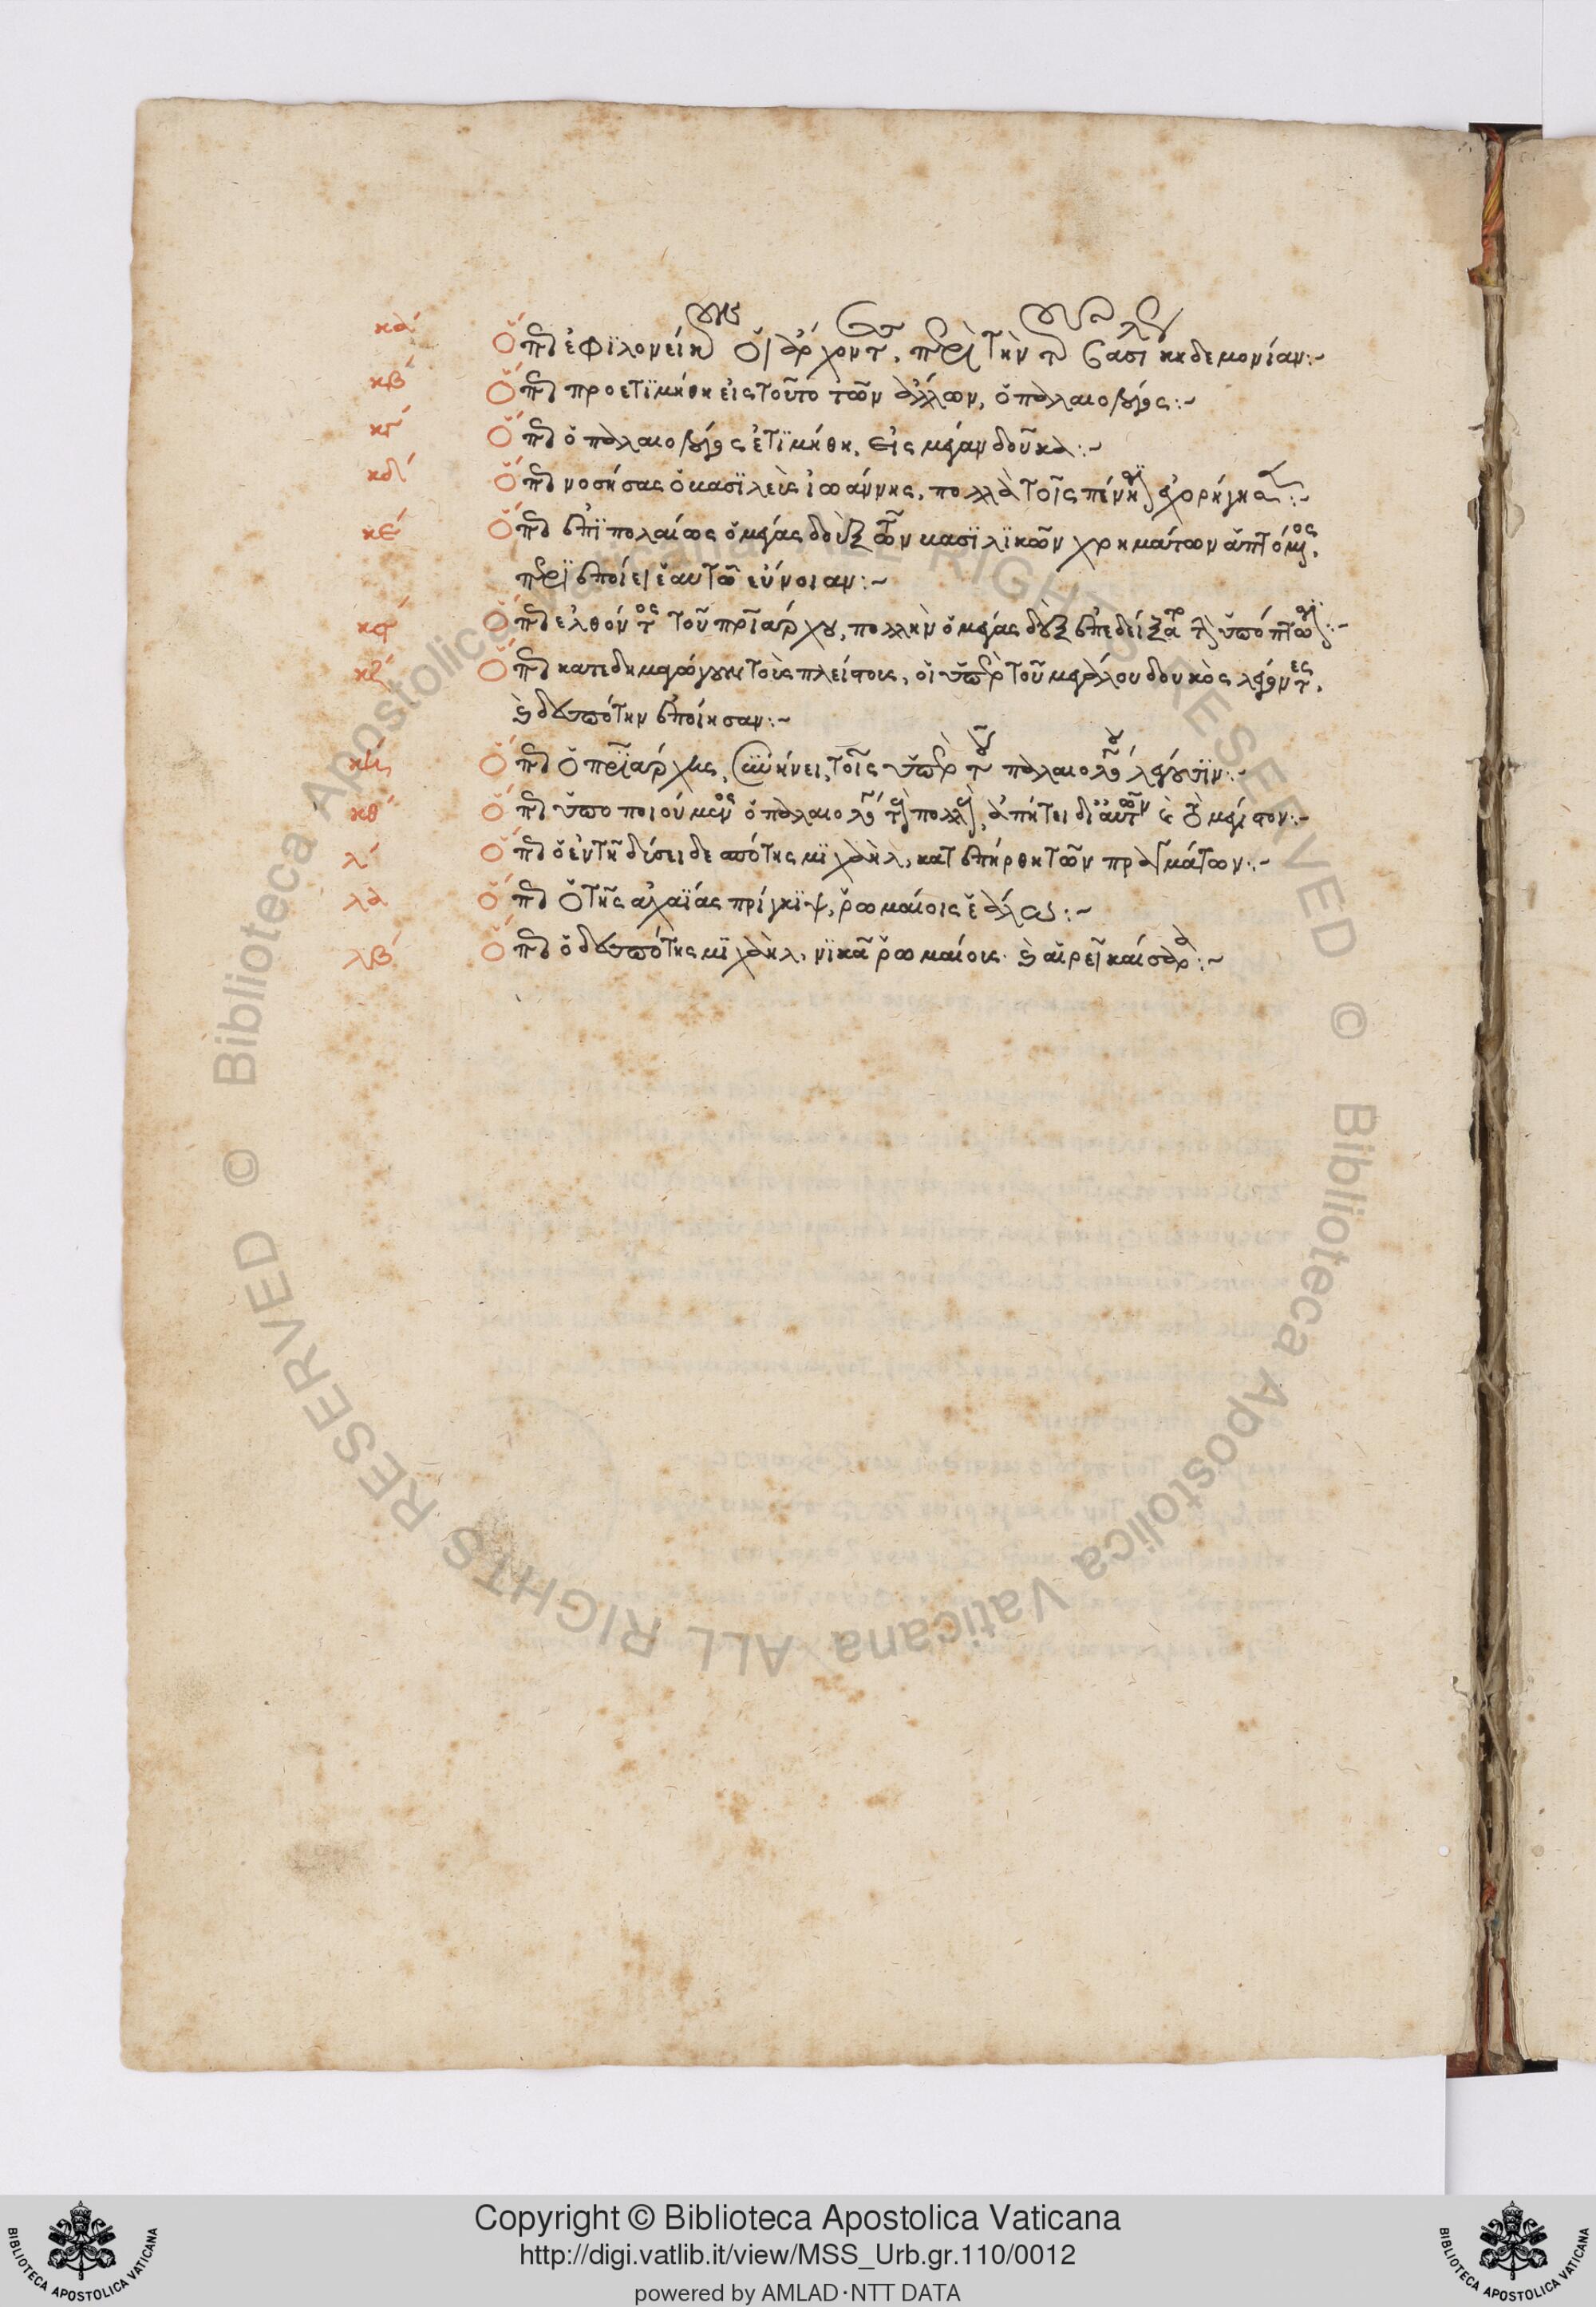 κα΄ Ὅπως ἐφιλονείκουν οἱ ἄρχοντες, περὶ τὴν τοῦ βασιλέως κηδεμονίαν:~
κβ΄ Ὅπως προετιμήθη εἰς τοῦτο τῶν ἄλλων, ὁ παλαιολόγος:~
κγ΄ Ὅπως ὁ παλαιολόγος ἐτιμήθη, εἰς μέγαν δοῦκα:~
κδ΄ Ὅπως νοσήσας ὁ βασιλεὺς ἰωάννης, πολλὰ τοῖς πένησι
κε΄ Ὅπως ἐπιπολαίως ὁ μέγας δοὺξ τῶν βασιλικῶν χρημάτων ἁπτόμενος,
περιεποίει ἑαυτῷ εὔνοιαν:~
κϛ΄ Ὅπως ἐλθόντος τοῦ πατριάρχου, πολλὴν ὁ μέγας δοὺξ ἐπεδείξατο τὴν ὑπόπτωσιν:~
κζ΄ Ὅπως κατεδημαγώγουν τοὺς πλείστους, οἱ ὑπὲρ τοῦ μεγάλου δουκὸς λέγοντες,
καὶ δεσπότην ἐποίησαν:~
κη΄ Ὅπως ὁ πατριάρχης, συνῄνει, τοῖς ὑπὲρ τοῦ παλαιολόγου λέγουσιν:~
κθ΄ Ὅπως ὑποποιούμενος ὁ παλαιολόγος τοὺς πολλούς, ἀπῄτει δι᾽ αὐτῶν καὶ τὸ μέγιστον:~
λ΄ Ὅπως ὁ ἐν τῇ δύσει δεσπότης μιχαὴλ, κατεπήρθη τῶν πραγμάτων:~
λα Ὅπως ὁ τῆς ἀχαΐας πρίγκιψ, ῥωμαίοις ἑάλω:~
λβ΄ Ὅπως ὁ δεσπότης μιχαὴλ, νικᾷ ῥωμαίους καὶ αἱρεῖ καίσαρα:~
© Biblioteca Apostolica Vaticana ALL RIGHTS RESERVED © Biblioteca Apostolica Vaticana ALL RIGHTS RESERVED
Copyright © Biblioteca Apostolica Vaticana
http://digi.vatlib.it/view/MSS_Urb.gr.110/0012
powered by AMLAD·NTT DATA
BIBLIOTECA APOSTOLICA VATICANA
BIBLIOTECA APOSTOLICA VATICANA